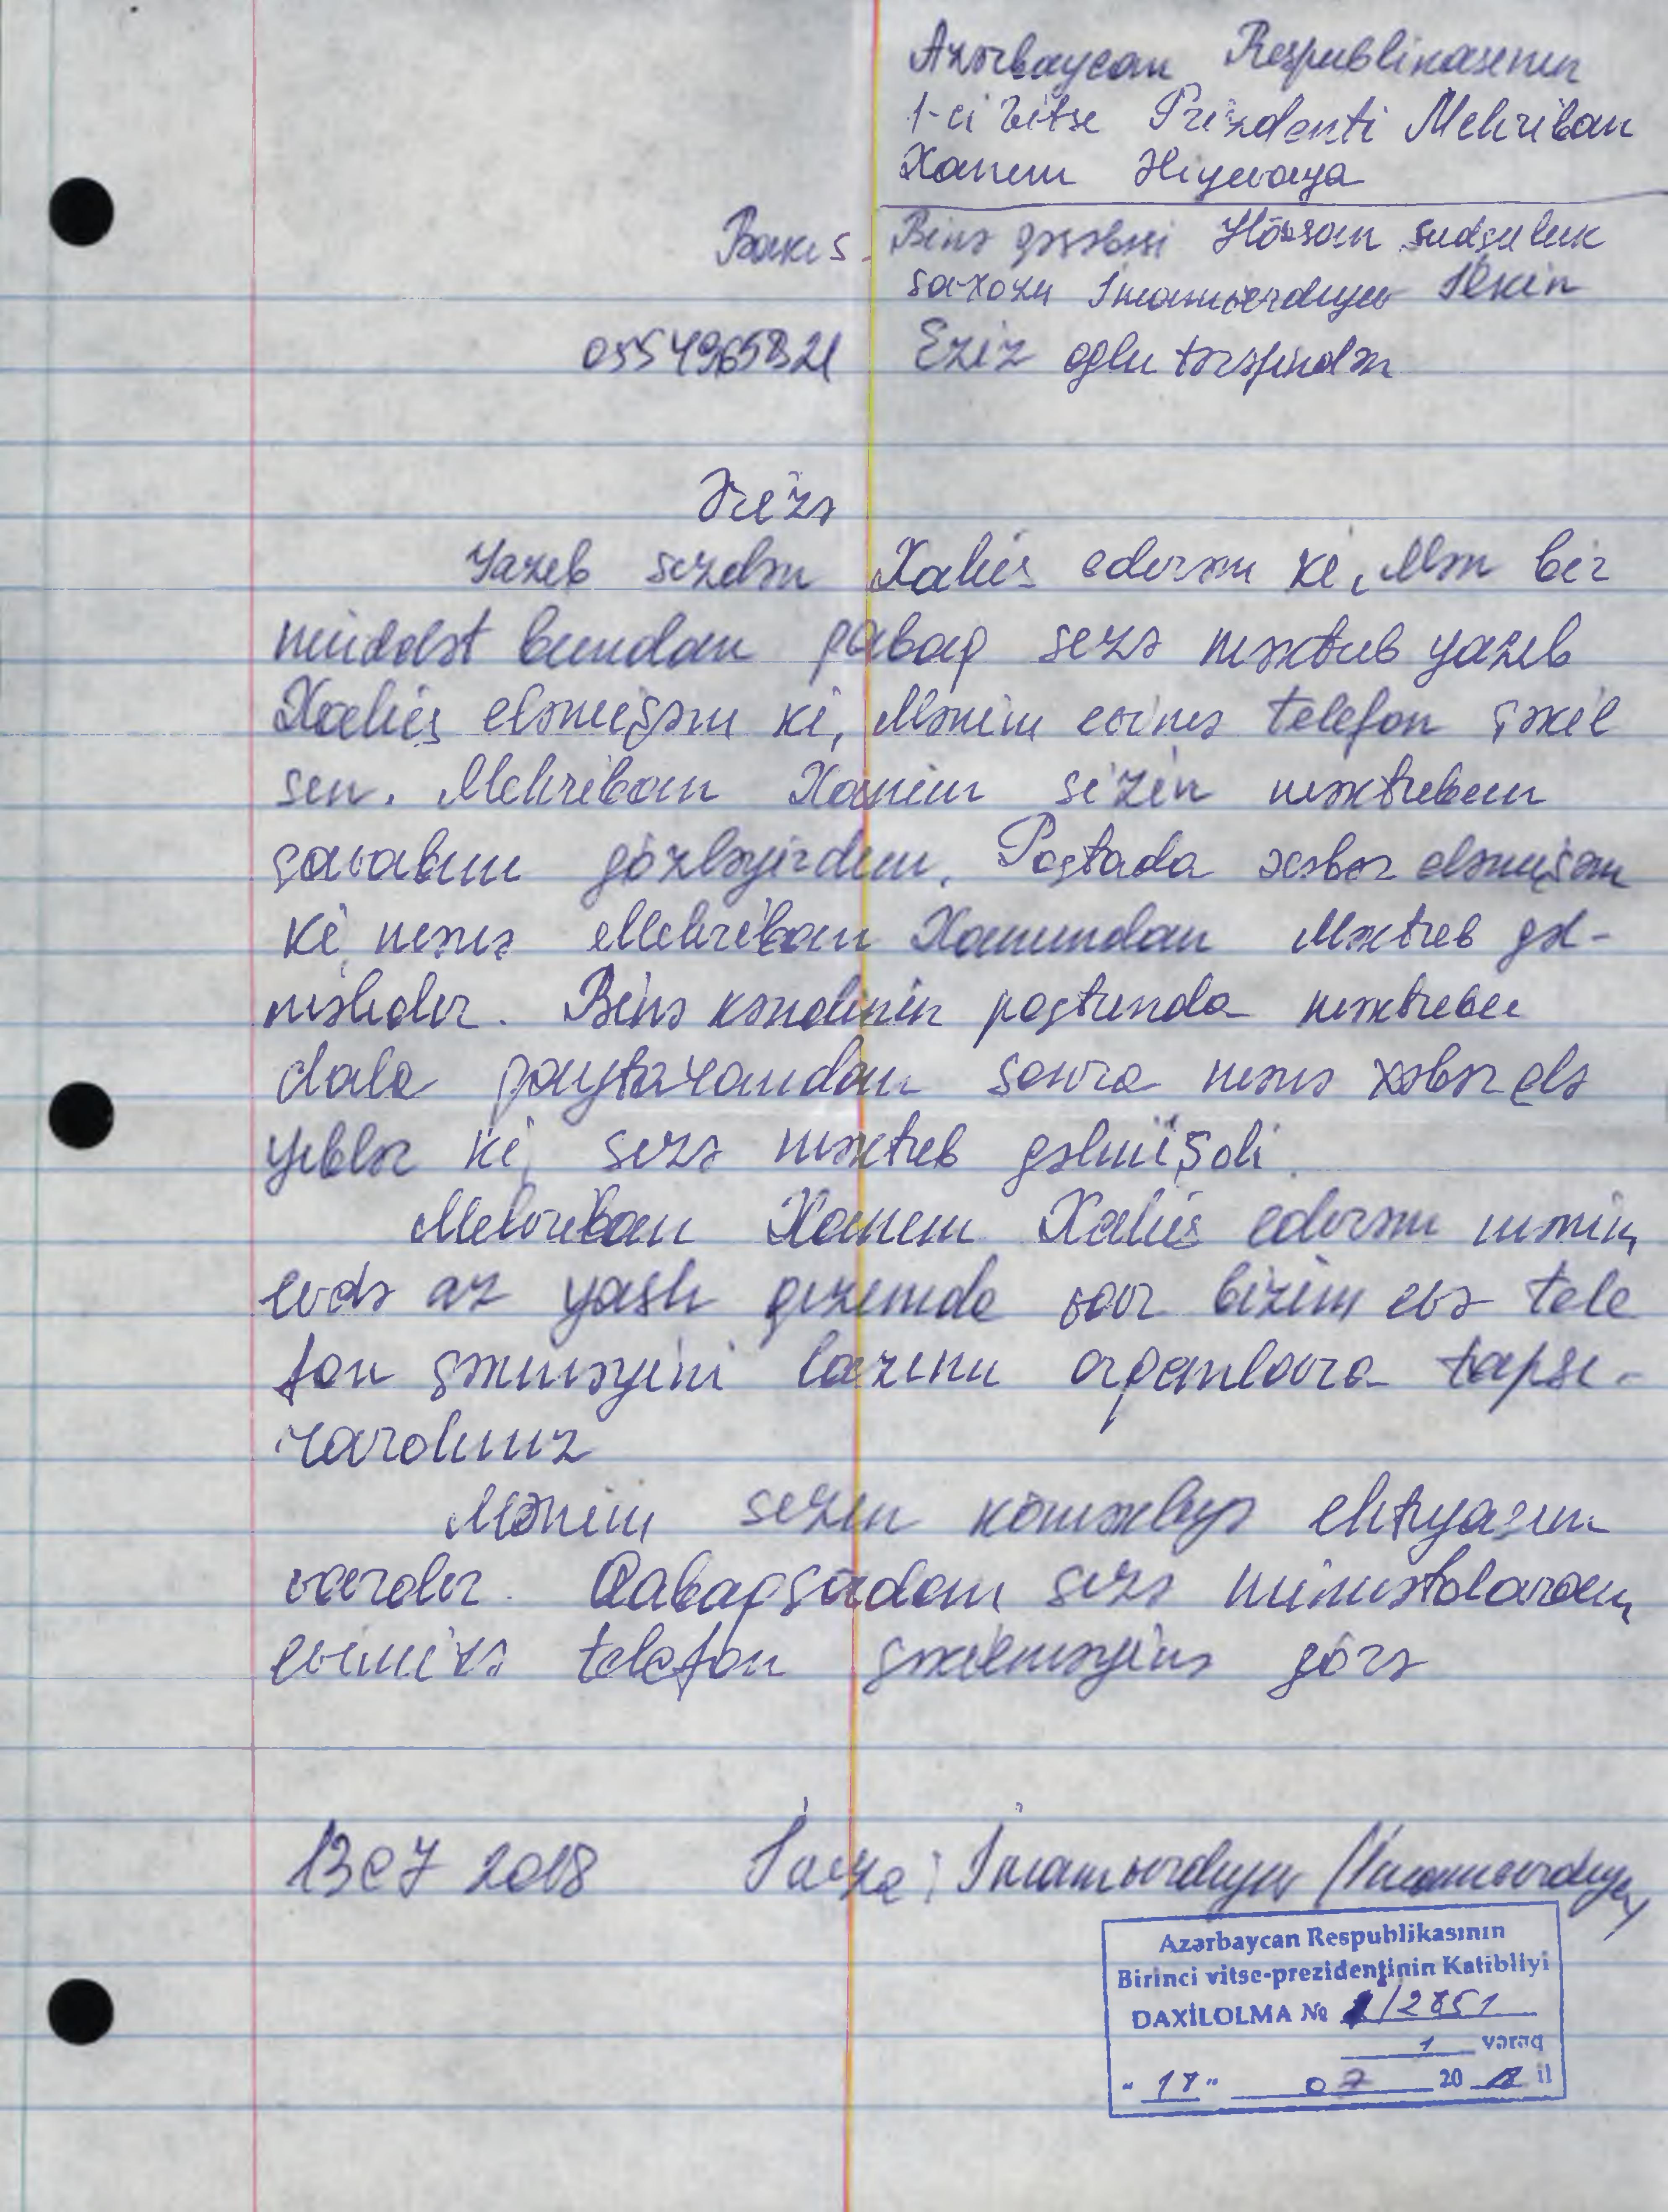 Azərbaycan Respublikasının
1-ci Vitse Prizdenti Mehriban
Xanım Əliyevaya
Bakı ş. Binə qəsəbəsi Hövsan südçülük
saxozu İmamverdiyev İlkin
0554965821 Eziz oğlu tərəfindən
Ərizə
Yazıb sizdən Xahiş edirəm ki, Mən bir
müddət bundan qabaq sizə məktub yazıb
Xahiş eləmişəm ki, Mənim evimə telefon çəkil
sin. Mehriban Xanim sizin məktubun
çavabını gözləyirdim. Poştada xəbər eləmişəm
ki, mənə Mehriban Xanımdan Məktub gəl-
məlidir. Binə kəndinin poştunda məktubu
dala qaytarandan sonra mənə xəbər elə
yıblər ki, sizə məktub gəlmüşdi.
Mehriban Xanım Xahiş edirəm mənim
evdə az yaşlı qızımda var bizim evə tele
fon çəkməyini lazımı orqanlara tapşı-
rardınız
Mənim sizin köməkliyə ehtyaçım
vardır. Qabaqçadan sizə minnətdaram
evimizə telefon çəkilməyinə görə
13 07 2018 İmza: İmamverdiyev /İmamverdiyev/
Azərbaycan Respublikasının
Birinci vitse-prezidentinin Katibliyi
DAXİLOLMA № 1/2851
1 vərəq
"17" 07 2018 il